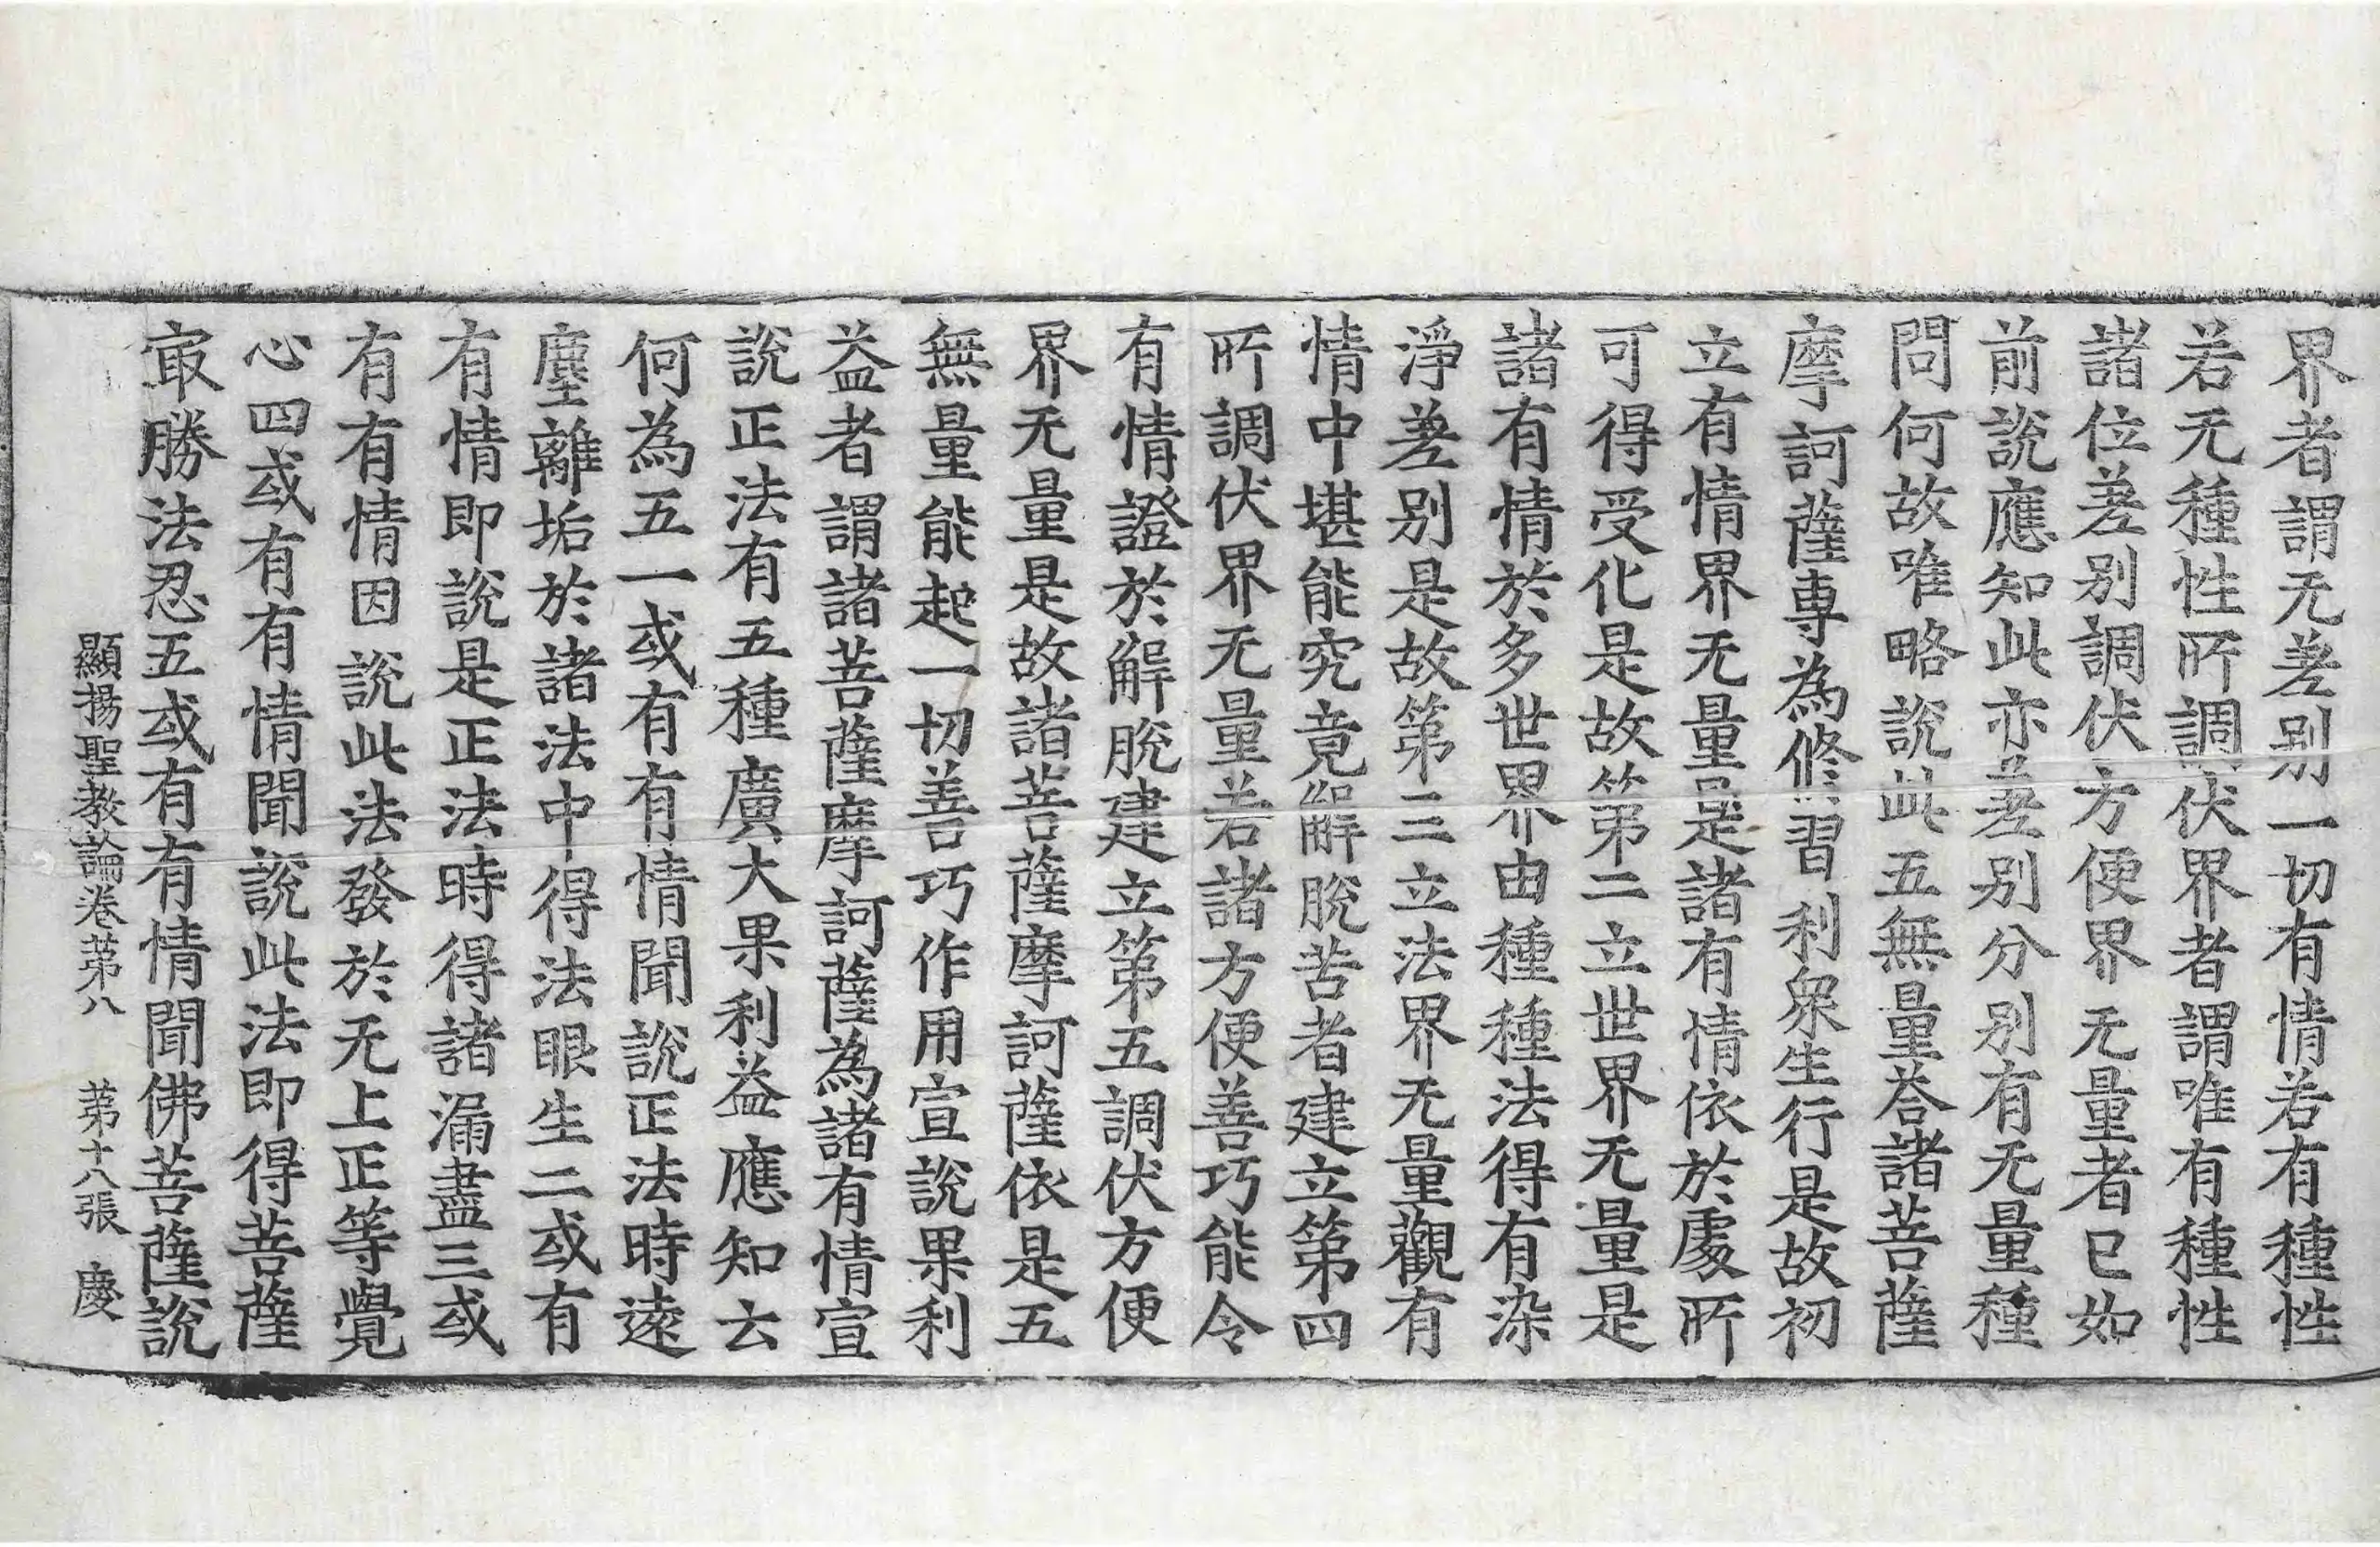 界者謂无差别一切有情若有種性
若无種性所調伏界者謂唯有種性
諸位差别調伏方便界无量者已如
前說應知此亦差别分别有无量種
問何故唯略說此五無量荅諸菩薩
摩訶薩專為修習利衆生行是故初
立有情界无量是諸有情依於處所
可得受化是故第二立世界无量是
諸有情於多世界由種種法得有染
淨差别是故第三立法界无量觀有
情中堪能究竟解脫苦者建立第四
所調伏界无量若諸方便善巧能令
有情證於解脫建立第五調伏方便
界无量是故諸菩薩摩訶薩依是五
無量能起一切善巧作用宣說果利
益者謂諸菩薩摩訶薩為諸有情宣
說正法有五種廣大果利益應知云
何為五一或有有情聞說正法時遠
塵離垢於諸法中得法眼生二或有
有情即說是正法時得諸漏盡三或
有有情因說此法發於无上正等覺
心四或有有情聞說此法即得菩薩
㝡勝法忍五或有有情聞佛菩薩說
顯揚聖教論卷苐八　苐十八張　慶